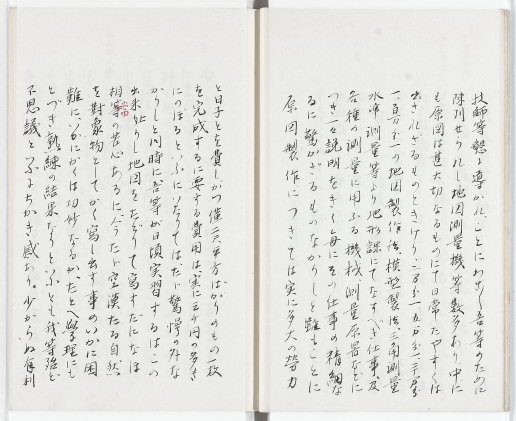 技師等懇に導かれ、ことにわざ〳〵吾等のために
陳列せられし地図測量機等数多あり、中に
も原図は甚大切なるものにて日常たやすくは
出されざるものときけり二万分一五万分一
一百万分一の地図製作法模型製法、三角測量
水準測量等より地形課にてなすべき仕事及
各種の測量に用ふる機械測量原器などに
つき一々説明をきく毎にその仕事の精細な
るに驚かざるものなかりしと雖もことに
原図製作につきては実に多大の労力
と日子とを費しかつ僅二尺平方ばかりのもの一枚
を完成するに要する費用は実に三千円の多き
にのぼるといふにいたりてはたゞ驚愕の外な
かりしと同時に吾等が日頃実習するは一つ
出来上りし地図をたどりて写すだになほ
相当の苦心あるに今たゞ空漠たる自然
を対象物としてかく写し出す事のいかに困
難にいかにかくは巧妙なるか、たとへ学理にも
とづき熟練の結果なりといふとも我等殆ど
不思議といふにちかき感あり、少からぬ有利